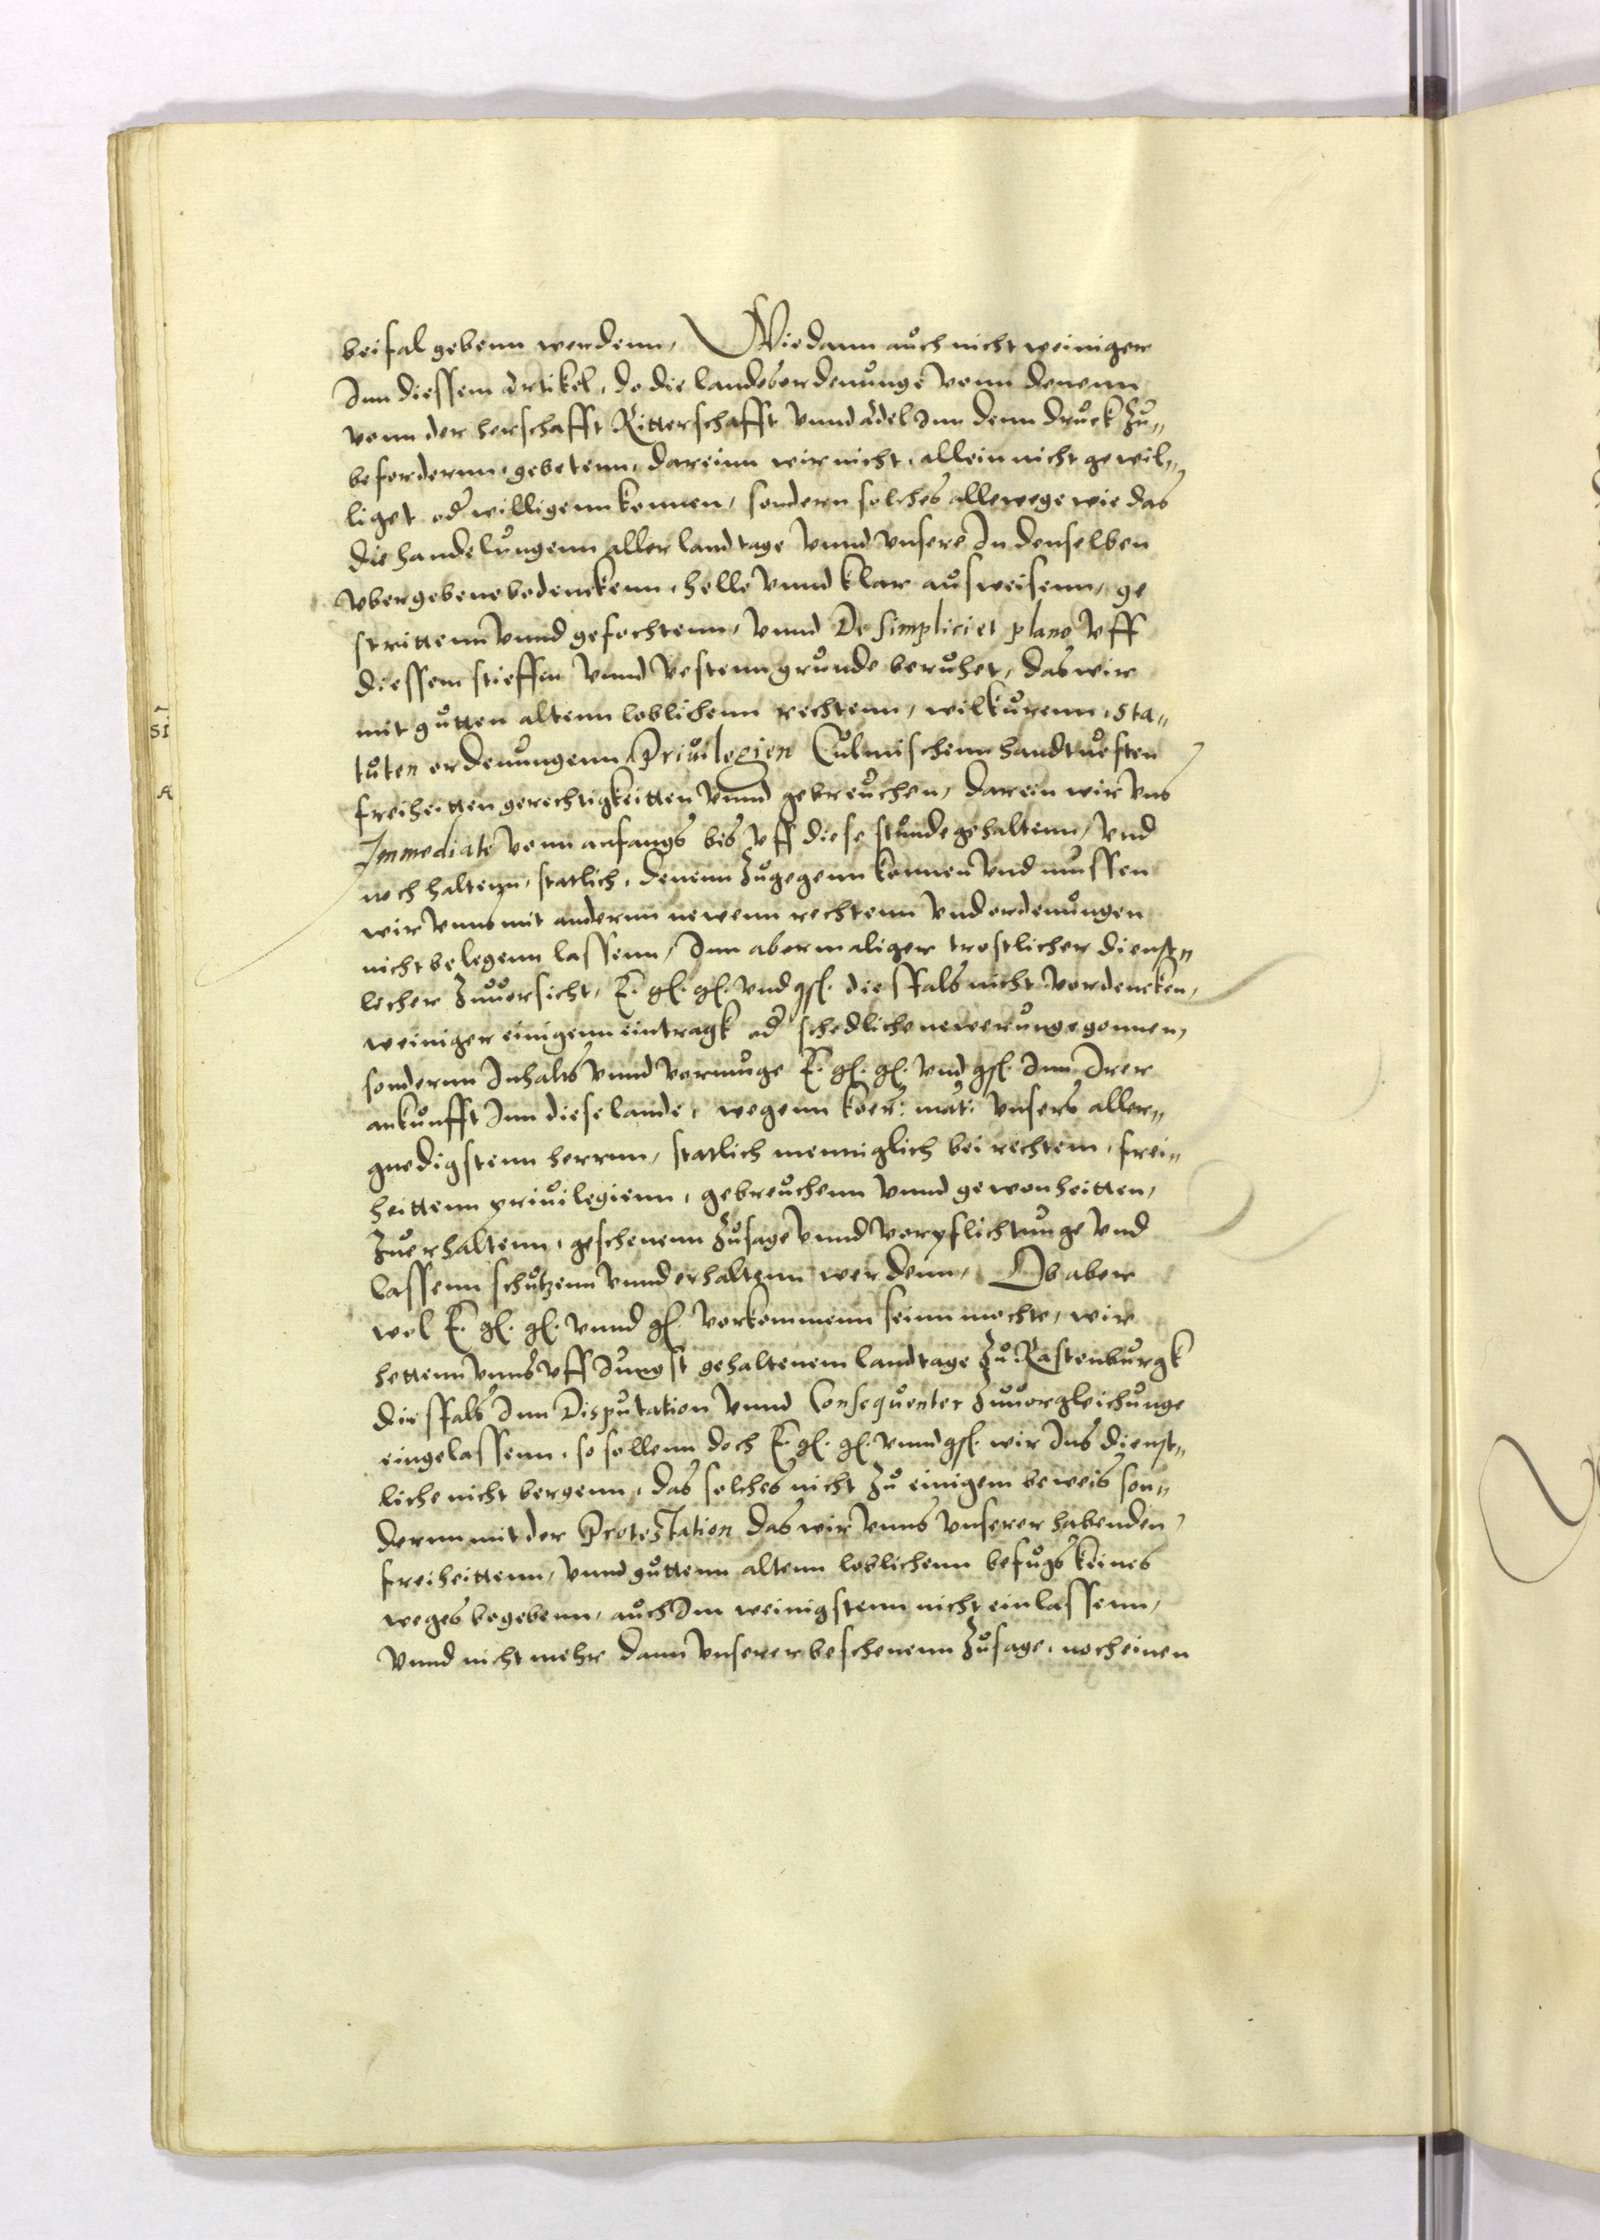 beifal gebenn werdenn, Wie dann auch nicht weiniger
Inn diessem artikel, do die landesordenunge vonn denenn
vonn der herschafft Ritterschafft vnnd adel Inn denn druck zu„
beforderenn, gebetenn, dareinn wir nicht, allein nicht gewil„
liget od willigenn konnen, sondern solches allewege wie das
die handelungenn aller landtage vnnd vnsere In denselben
vbergebene bedenckenn, helle vnnd klar ausweisenn, ge
strittenn vnnd gefochtenn, vnnd De simplici et plano vff
diessem stieffen vnnd vestenn grunde beruhet, das wir
mit gutten altenn loblichenn rechtenn, wilkurenn, Sta„
tuten ordenungenn Priuilegien Culmischenn handtuesten
freiheitten gerechtigkeitten vnnd gebreuchen, darein wir vns
Immediate vonn anfangs bis vff diese stunde gehaltenn, vnd
noch haltenn, statlich, denenn zugegenn konnen vnd mussen
wir vnns mit anderenn newenn rechtenn vnd ordenungen
nicht belegenn lassenn, Inn abermaliger trostlicher dienst„
licher zuuorsicht, E. gl. gl. vnd gst. diesfals nicht vordencken,
weiniger einigenn eintragk od schedliche newerunge gonnen,
sonderenn Inhalts vnnd vermuge E. gl. gl. vnd gst. Inn Irer
ankunfft Inn diese lande, wegenn koer: mat: vnsers aller„
gnedigstenn herrnn, statlich menniglich bei rechtem, frei„
heittenn priuilegienn, gebreuchenn vnnd gewonheitten,
zuerhaltenn, geschenenn zusage vnnd verpflichtunge vnd
lassenn schutzenn vnnd erhaltenn werdenn, Ob aber
wol E. gl. gl. vnnd gl. vorkommenn seinn mochte, wir
hettenn vnns vff Iungst gehaltenem landtage zu Rastenburgk
diesfals Inn Disputation vnnd Consequenter zuuorgleichunge
eingelassenn, so sollenn doch E. gl. gl. vnnd gst. wir Ins dienst„
liche nicht bergenn, das solches nicht zu einigem beweis son„
dernn mit der Protestation das wir vnns vnserer habenden,
freiheittenn, vnnd guttenn altenn loblichenn befugs keines
weges begebenn, auch Im weinigstenn nicht einlassenn,
vnnd nicht mehr dann vnserer beschenenn zusage, noch einen